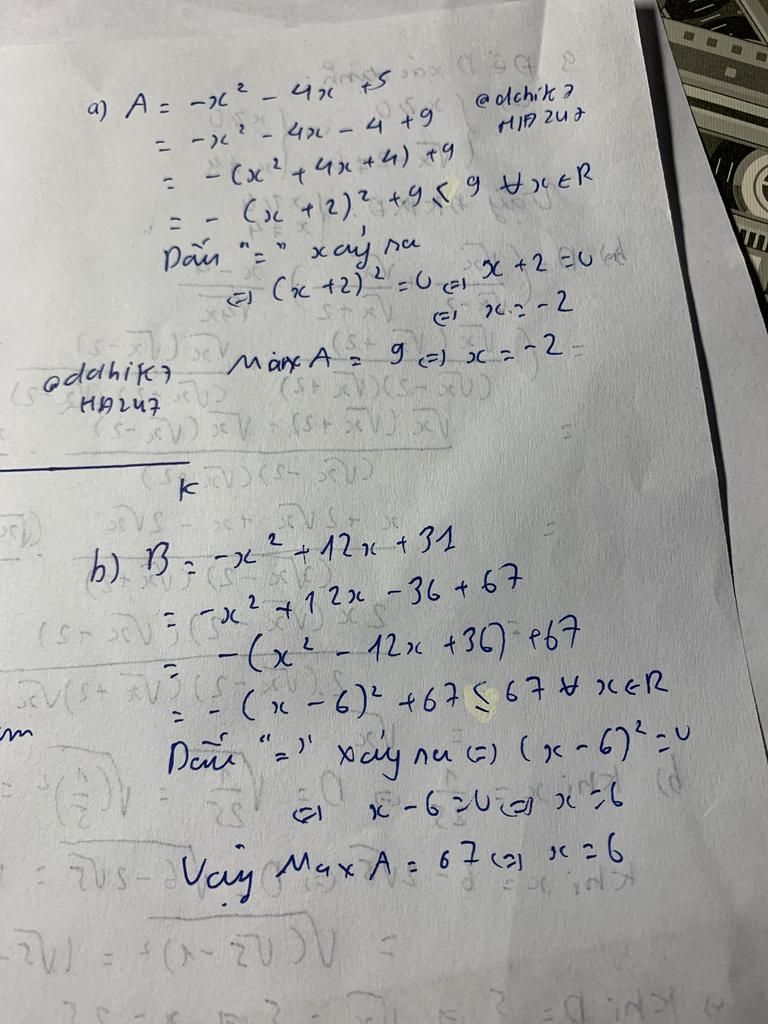 a) A = -x² - 4x + 5
= -x² - 4x - 4 + 9
= -(x² + 4x + 4) + 9
= - (x + 2)² + 9 ≤ 9 ∀ x ∈ R
Dấu "=" xảy ra
⇔ (x + 2)² = 0 ⇔ x + 2 = 0
⇔ x = -2
Max A = 9 ⇔ x = -2
K
b) B = -x² + 12x + 31
= -x² + 12x - 36 + 67
= -(x² - 12x + 36) + 67
= - (x - 6)² + 67 ≤ 67 ∀ x ∈ R
Dấu "=" xảy ra ⇔ (x - 6)² = 0
⇔ x - 6 = 0 ⇔ x = 6
Vậy Max A = 67 ⇔ x = 6